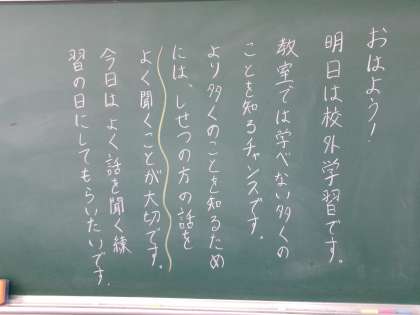 おはよう！
明日は校外学習です。
教室では学べない多くの
ことを知るチャンスです。
より多くのことを知るため
には、しせつの方の話を
よく聞くことが大切です。
今日はよく話を聞く練
習の日にしてもらいたいです。